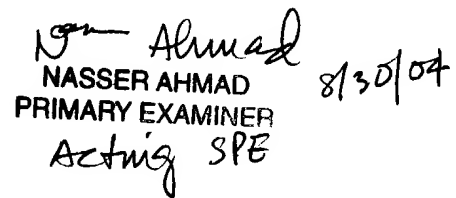 Nasser Ahmad
NASSER AHMAD 8/30/04
PRIMARY EXAMINER
Acting SPE